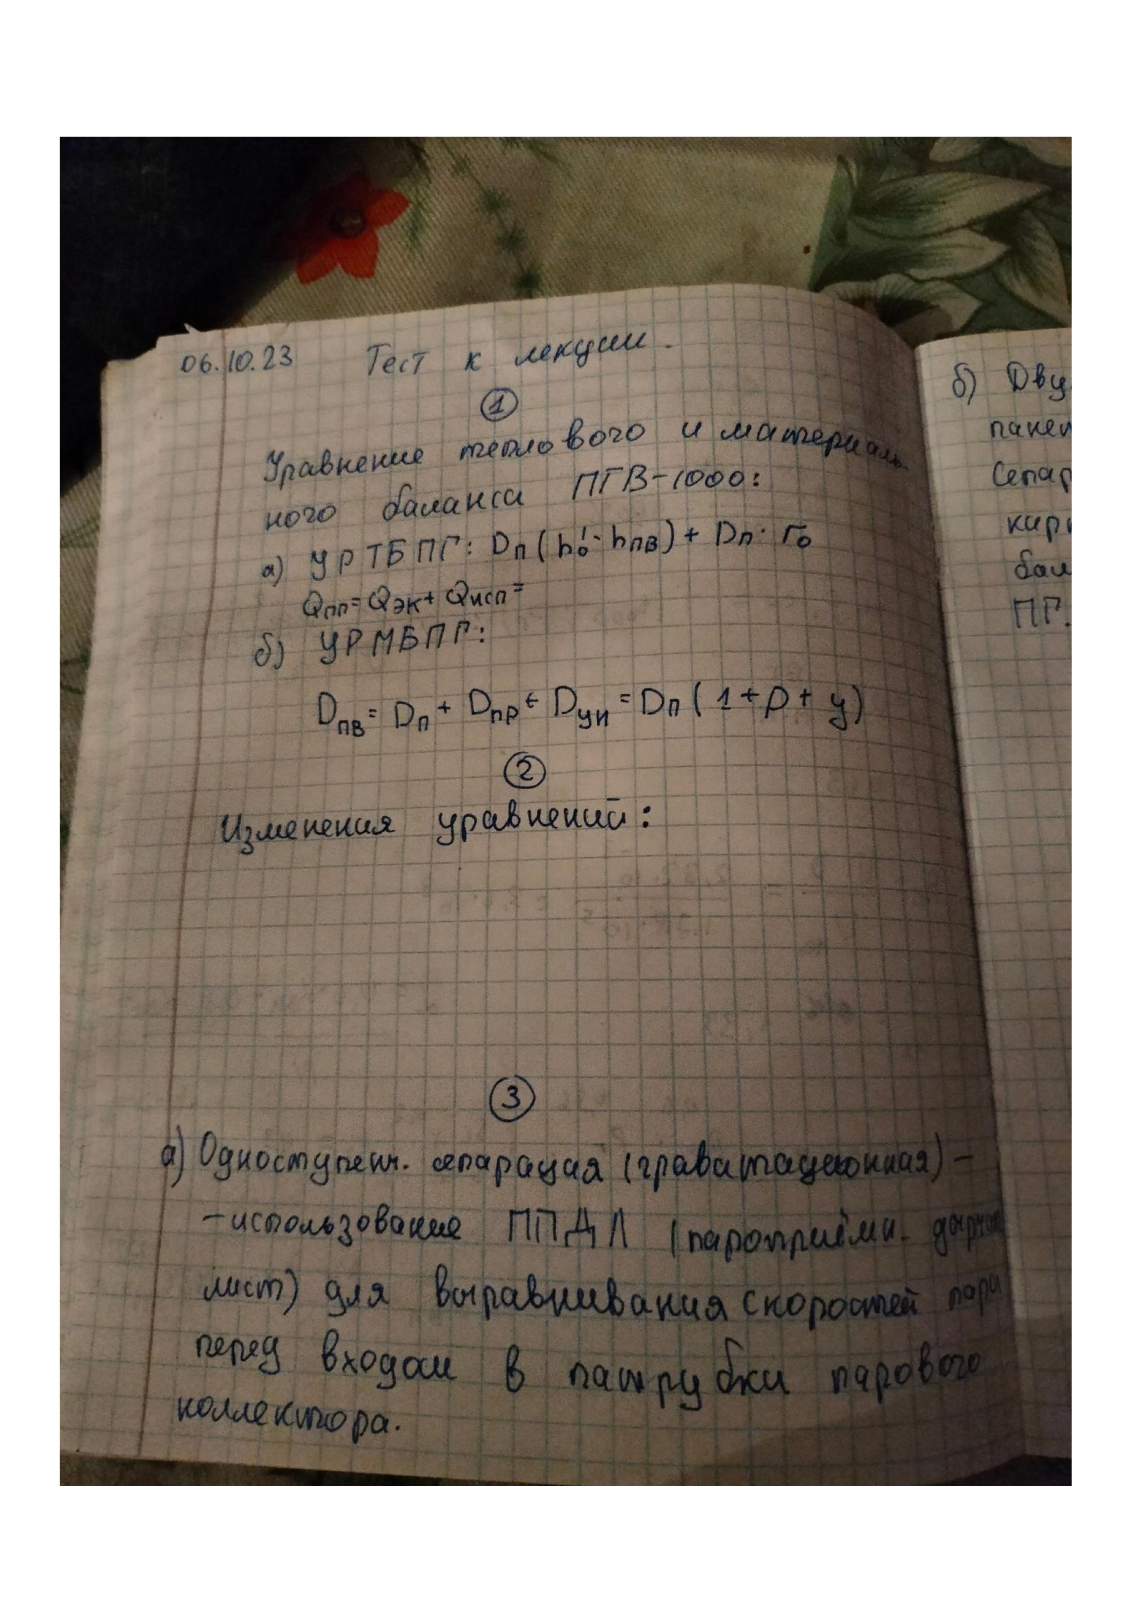 06.10.23 Тест к лекции.
1
Уравнение теплового и материаль-
ного баланса ПГВ-1000:
а) УРТБПГ: Dп(h₀'-hпв)+ Dп·Г₀
Qпг=Qэк+Qисп=
б) УРМБПГ:
Dпв=Dп+Dпр+Dун=Dп(1+р+у)
2
Изменения уравнений:
3
а) Одноступенч. сепарация (гравитационная) –
-использование ППДЛ (пароприёмн. дырчат
лист) для выравнивания скоростей пара
перед входом в патрубки парового
коллектора.
б) Дву
пакет
Сепар
бал
ПГ.